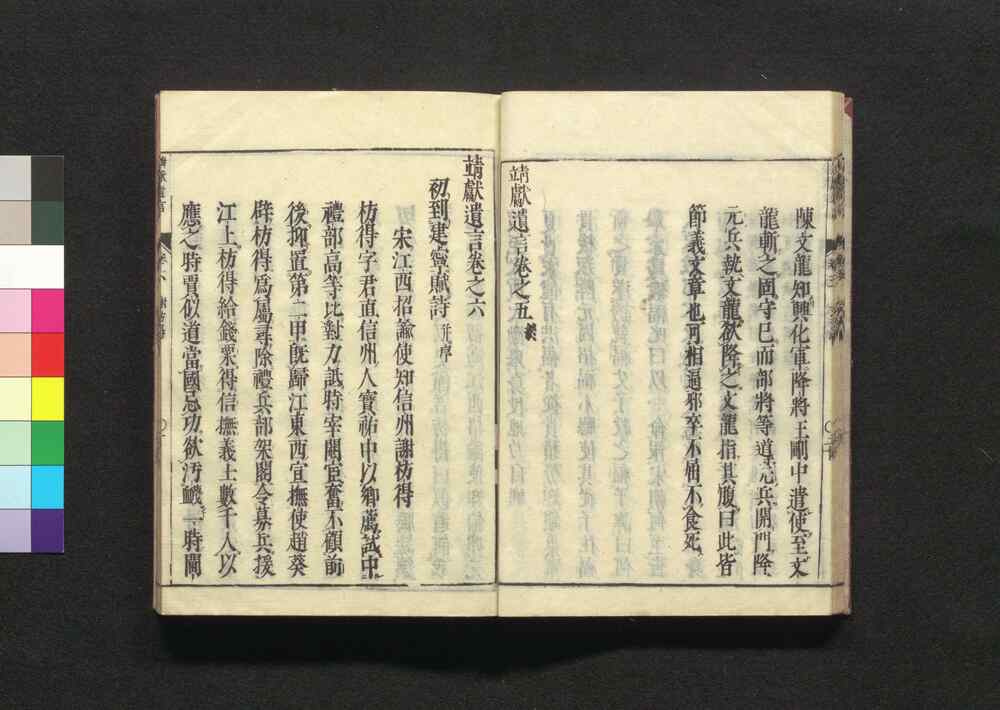 陳文龍知興化軍降將王剛中遣使至文
龍斬之固守已而部將等道元兵開門降
元兵執文龍欲降之文龍指其腹曰此皆
節義文章也可相逼邪卒不屈不食死
靖獻遺言卷之五終
靖獻遺言卷之六
初到建寧賦詩并序
宋江西招諭使知信州謝枋得
枋得字君直信州人寶祐中以鄉薦試中
禮部高等比對力詆時宰閹宦奮不顧前
後抑置第二甲既歸江東西宣撫使趙葵
辟枋得爲屬尋除禮兵部架閣令募兵援
江上枋得給錢粟得信撫義士數千人以
應之時賈似道當國忌功欲汚衊一時閫